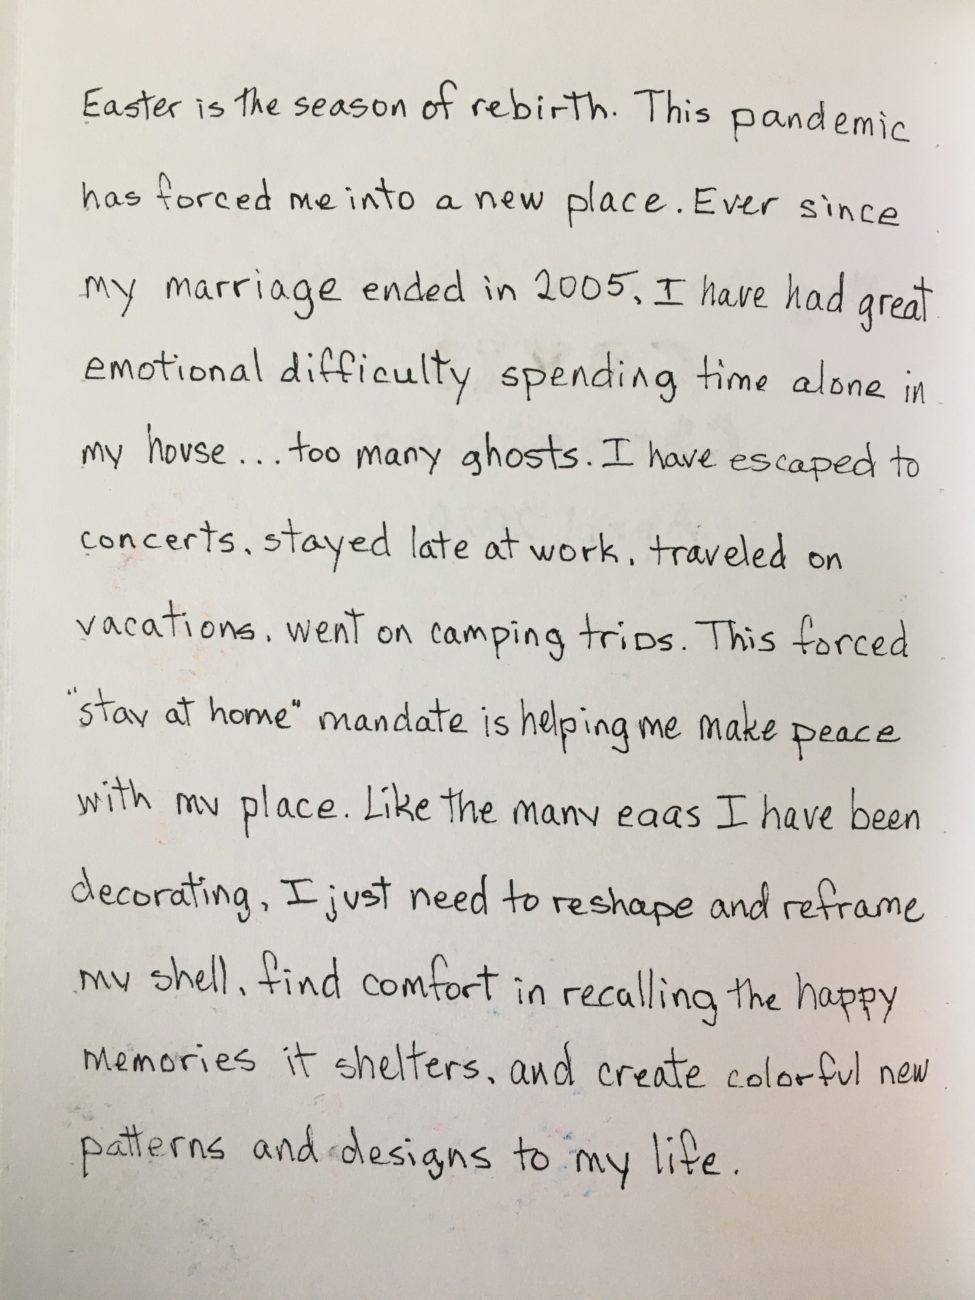 Easter is the season of rebirth. This pandemic
has forced me into a new place. Ever since
my marriage ended in 2005, I have had great
emotional difficulty spending time alone in
my house...too many ghosts. I have escaped to
concerts, stayed late at work, traveled on
vacations, went on camping trips. This forced
"stay at home" mandate is helping me make peace
with my place. Like the many eggs I have been
decorating, I just need to reshape and reframe
my shell, find comfort in recalling the happy
memories it shelters, and create colorful new
patterns and designs to my life.